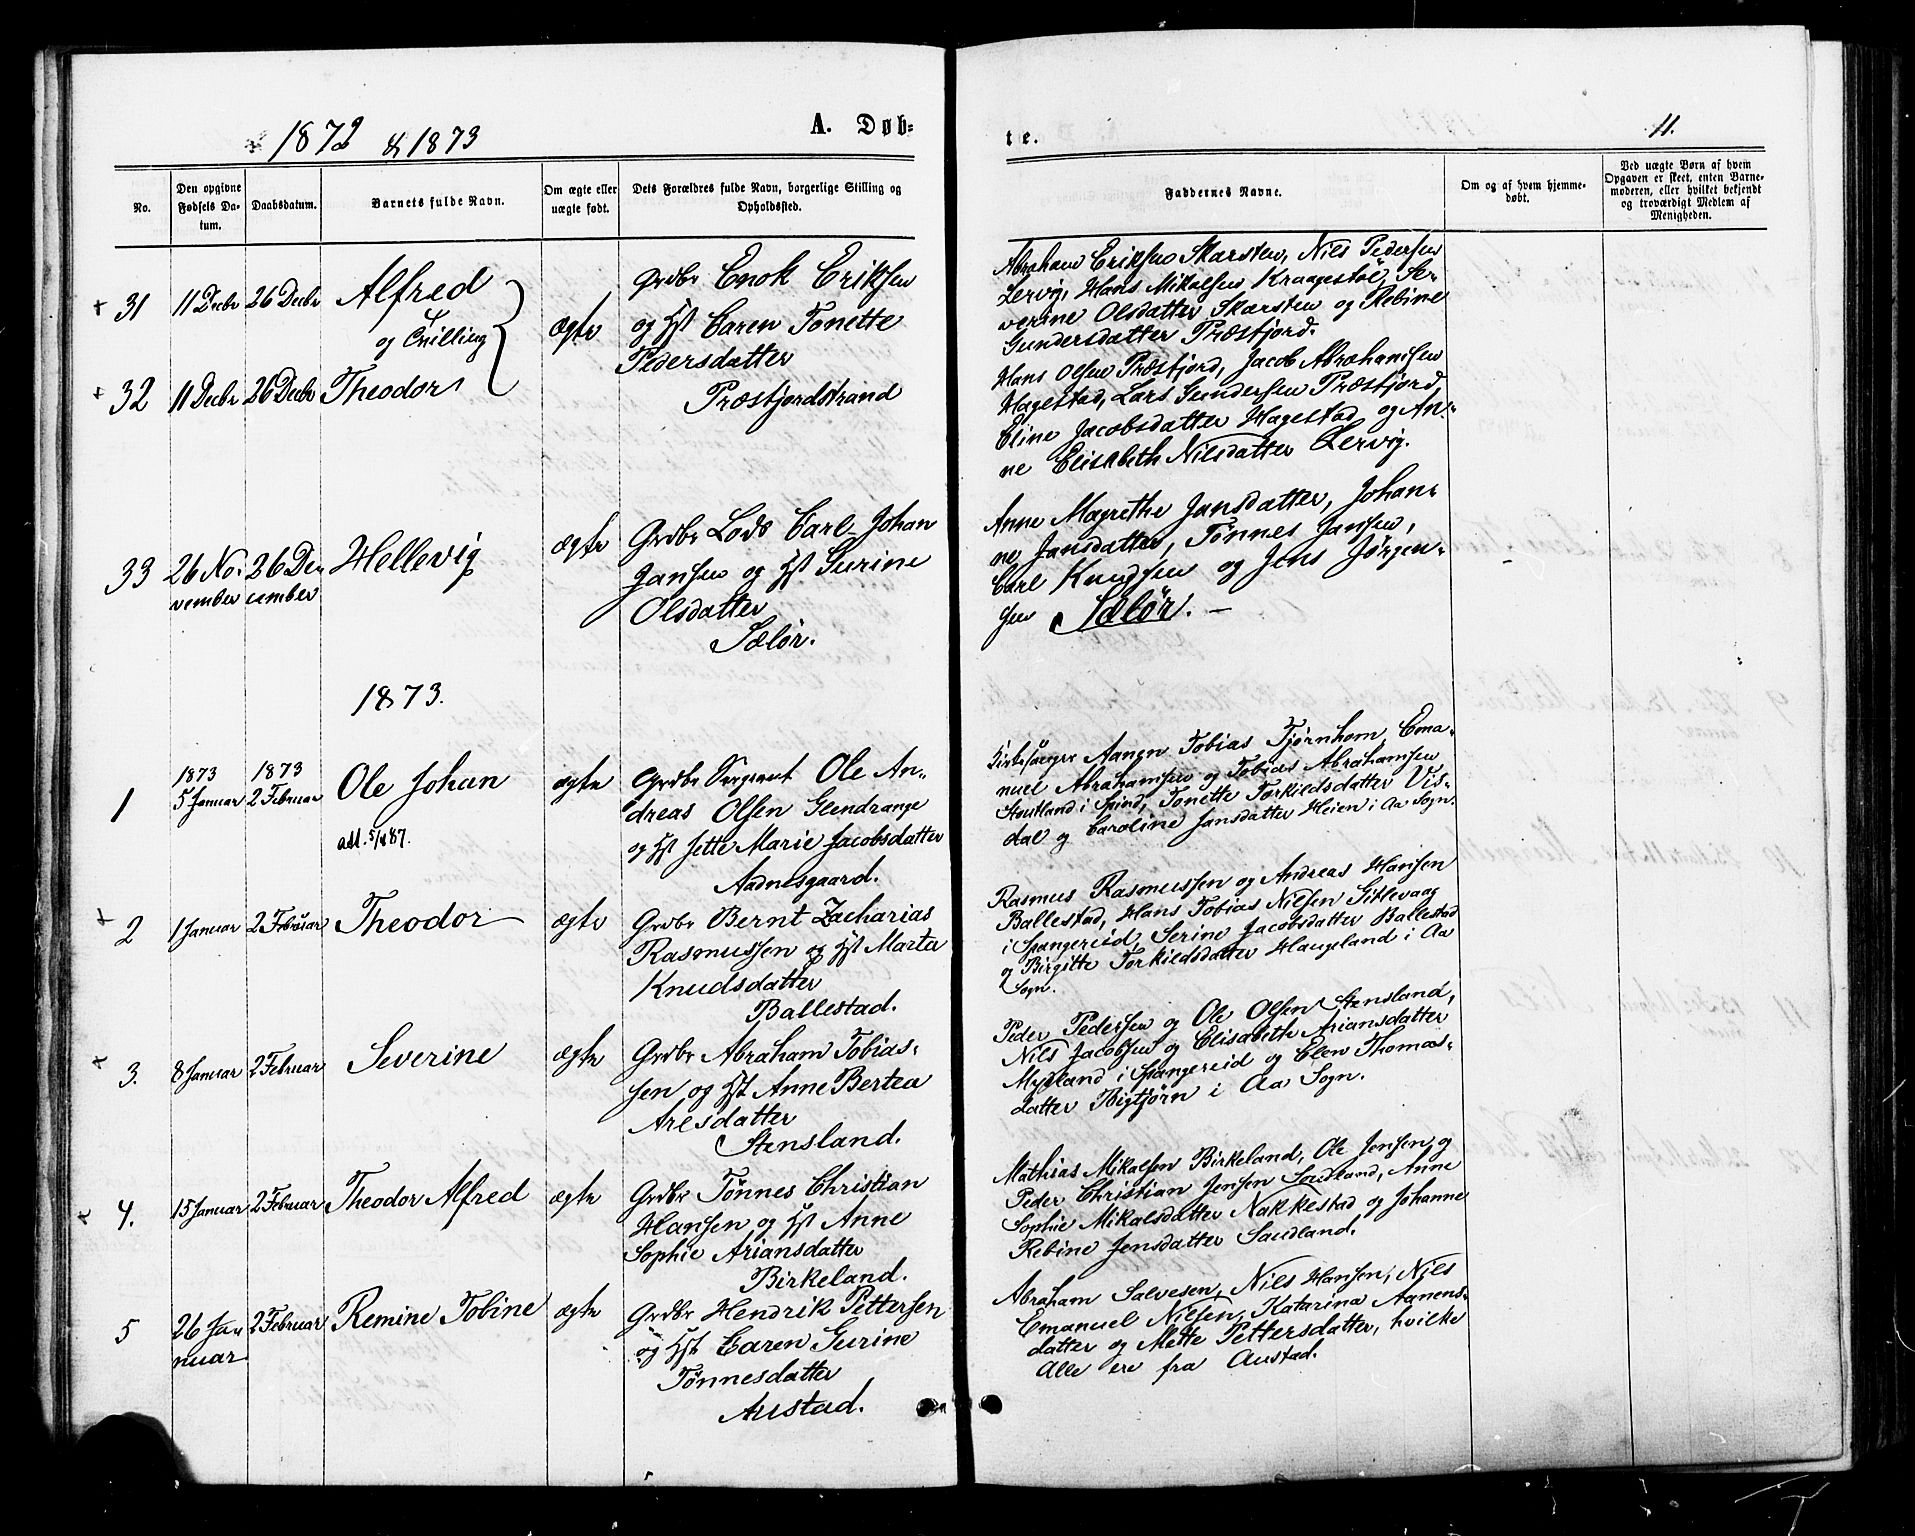 1872 & 1873
A. Døb-
te.
11.
No.
Den opgivne Fødsels Da-tum.
Daabsdatum.
Barnets fulde Navn.
Om ægte eller uægte født.
Dets Forældres fulde Navn, borgerlige Stilling og Opholdssted.
Faddernes Navne.
Om og af hvem hjemme-døbt.
Ved uægte Børn af hvem Opgaven er skeet, enten Barne-moderen, eller hvilket bekjendt og troværdigt Medlem af Menigheden.
31 11 Decbr 26 Decbr Alfred
og Tvilling
32 11 Decbr 26 Decbr Theodor
ægte
Grdbr Enok Eriksen
og Hst Caren Tonette
Pedersdatter
Præstfjordstrand
Abraham Eriksen Skarsten, Nils Pedersen
Lervig, Hans Mikalsen Kraagestøl, Se-
verine Olsdatter Skarsten og Rebine
Gundersdatter Præstfjord.
Hans Olsen Præstfjord, Jacob Abrahamsen
Hagestad, Lars Gundersen Præstfjord,
Eline Jacobsdatter Hagestad og An-
ne Elisabeth Nilsdatter Lervig.
33 26 No- 26 De- Hellevig ægte
vember cember
Grdbr Lods Carl Johan
Jansen og Hst Gurine
Olsdatter
Sælør.
Anne Magrethe Jansdatter, Johan-
ne Jansdatter, Tønnes Jansen,
Carl Knudsen og Jens Jørgen-
sen Sælør. —
1873.
1873 1873
1 5 Januar 2 Februar Ole Johan ægte
att. 5/1 87.
Grdbr Sergeant Ole An-
dreas Olsen Glendrange
og Hst Jette Marie Jacobsdatter
Aadnesgaard.
Kirkesanger Aanen Tobias Tjørnhom, Ema-
nuel Abrahamsen og Tobias Abrahamsen
Stoutland i Spind, Tonette Torkildsdatter Vis-
dal og Caroline Jansdatter Heien i Aa Sogn.
2 1 Januar 2 Februar Theodor ægte
Grdbr Bernt Zacharias
Rasmussen og Hst Marta
Knudsdatter
Ballestad.
Rasmus Rasmussen og Andreas Hansen
Ballestad, Hans Tobias Nilsen Gitlevaag
i Spangereid, Serine Jacobsdatter Ballestad
og Birgitte Torkildsdatter Haugeland i Aa
Sogn.
3. 8 Januar 2 Februar Severine ægte
Grdbr Abraham Tobias-
sen og Hst Anne Bertea
Aresdatter
Stensland.
Peder Pedersen og Ole Olsen Stensland,
Nils Jacobsen og Elisabeth Ariansdatter
Mydland i Spangereid og Elen Thomas-
datter Bigtjørn i Aa Sogn.
4. 15 Januar 2 Februar Theodor Alfred ægte
Grdbr Tønnes Christian
Hansen og Hst Anne
Sophie Ariansdatter
Birkeland.
Mathias Mikalsen Birkeland, Ole Jensen og
Peder Christian Jensen Sandland, Anne
Sophie Mikalsdatter Nakkestad og Johanne
Rebine Jensdatter Sandland.
5 26 Ja- 2 Februar Remine Tobine ægte
nuar
Grdbr Hendrik Pettersen
og Hst Caren Gurine
Tønnesdatter
Austad.
Abraham Salvesen, Nils Hansen, Nils
Emanuel Nilsen, Katarina Aanens-
datter og Mette Pettersdatter, hvilke
Alle ere fra Austad.